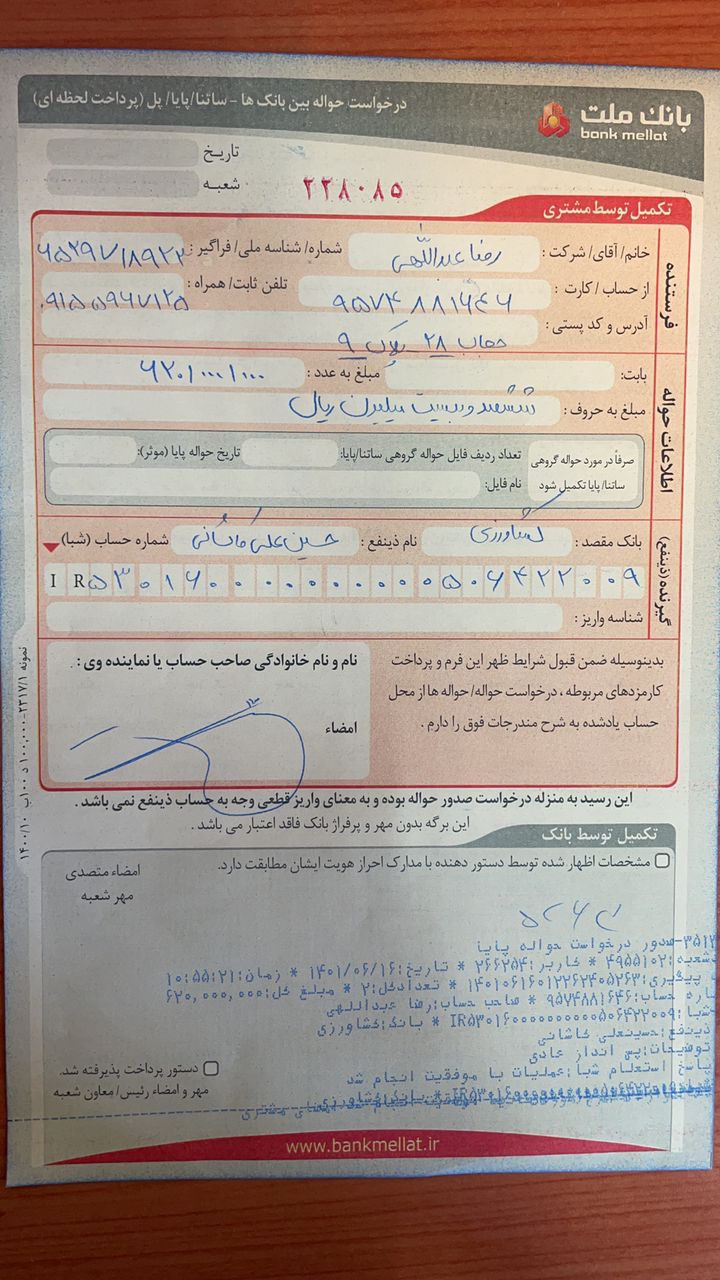 بانک ملت
bank mellat
درخواست حواله بین بانک ها - ساتنا/پایا/ پل (پرداخت لحظه ای)
تاریخ
شعبه
۲۲۸۰۸۵
تکمیل توسط مشتری
فرستنده
خانم/ آقای/ شرکت : رضا عبداللهی شماره/ شناسه ملی/ فراگیر :
از حساب / کارت : ۹۵۷۴۸۸۱۶۴۶ تلفن ثابت/ همراه : ۰۹۱۵۵۹۶۷۱۲۵
آدرس و کد پستی : حجاب ۲۸ پلاک ۹
اطلاعات حواله
بابت: مبلغ به عدد : ۶۲۰/۰۰۰/۰۰۰
مبلغ به حروف : ششصد و بیست میلیون ریال
صرفاً در مورد حواله گروهی ساتنا/ پایا تکمیل شود
تعداد ردیف فایل حواله گروهی ساتنا/پایا: تاریخ حواله پایا (موثر):
نام فایل:
گیرنده (ذینفع)
بانک مقصد : کشاورزی نام ذینفع : حسین علی کاشانی شماره حساب (شبا)
IR ۵۳۰۱۶۰۰۰۰۰۰۰۰۰۰۵۰۶۴۲۲۰۰۹
شناسه واریز :
بدینوسیله ضمن قبول شرایط ظهر این فرم و پرداخت
کارمزدهای مربوطه ، درخواست حواله/ حواله ها از محل
حساب یادشده به شرح مندرجات فوق را دارم .
نام و نام خانوادگی صاحب حساب یا نماینده وی :
امضاء
این رسید به منزله درخواست صدور حواله بوده و به معنای واریز قطعی وجه به حساب ذینفع نمی باشد .
این برگه بدون مهر و پرفراژ بانک فاقد اعتبار می باشد .
نمونه ۲۳۱۷/۱-۱۰۰,۰۰۰ د ۱۰۰ب ۱۴۰۰/۱۰
تکمیل توسط بانک
مشخصات اظهار شده توسط دستور دهنده با مدارک احراز هویت ایشان مطابقت دارد.
امضاء متصدی
مهر شعبه
۳۵۱۲-صدور درخواست حواله پایا
شعبه:۴۹۵۵۱۰۲ * کاربر:۲۶۶۲۵۴ * تاریخ:۱۴۰۱/۰۶/۱۶ * زمان:۱۰:۵۵:۲۱
پیگیری:۱۴۰۱۰۶۱۶۰۱۲۲۶۲۴۰۵۲۶۳ * تعدادکل:۲ * مبلغ کل:۶۲۰,۰۰۰,۰۰۰
حساب:۹۵۷۴۸۸۱۶۴۶ * صاحب حساب:رضا عبداللهی
شبا:IR۵۳۰۱۶۰۰۰۰۰۰۰۰۰۰۵۰۶۴۲۲۰۰۹ * بانک:کشاورزی
ذینفع:حسینعلی کاشانی
توضیحات:پس انداز عادی
پاسخ استعلام شبا:عملیات با موفقیت انجام شد
دستور پرداخت پذیرفته شد.
مهر و امضاء رئیس/ معاون شعبه
www.bankmellat.ir